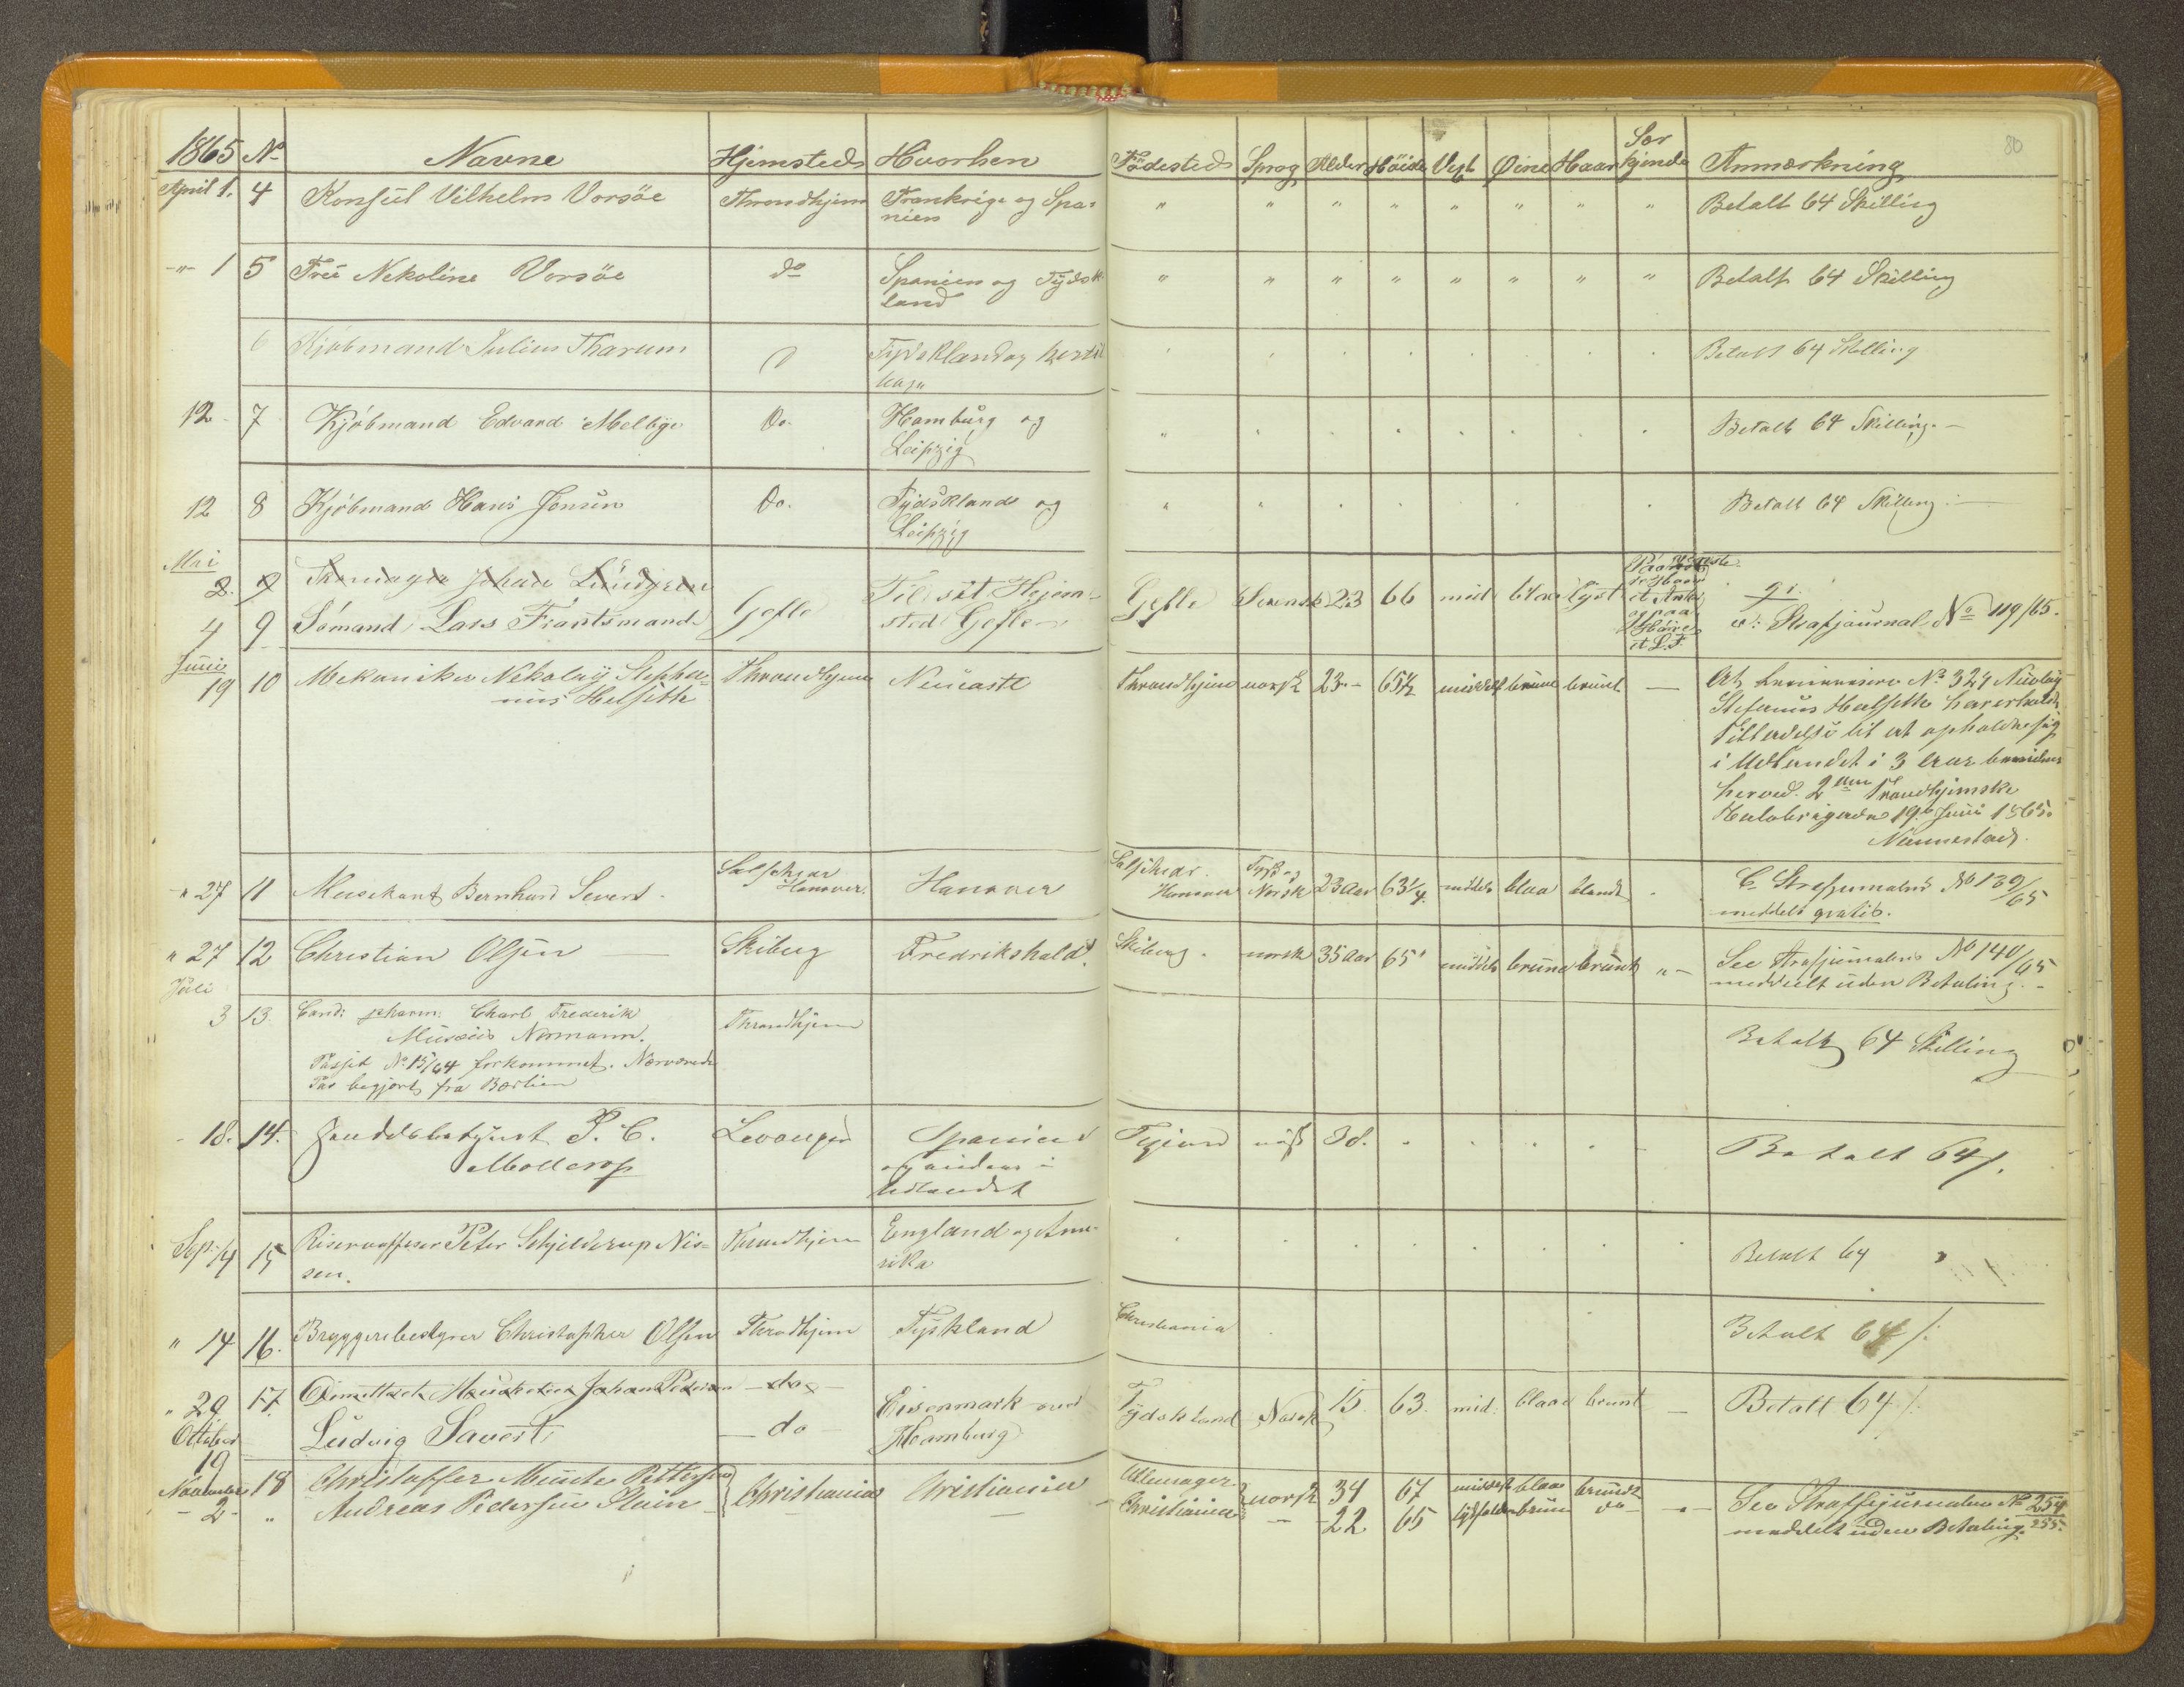 80
1865 No Navne Hjemsted Hvorhen Födested Sprog Alder Höide Vext Øine Haar Sær kjende Anmærkning
April 1. 4 Konsul Vilhelm Vorsöe Throndhjem Frankrige og Spanien " " " " " " " " Betalt 64 Skilling
-"- 1 5 Frü Nekoline Vorsöe do Spanien og Tydskland " " " " " " " " Betalt 64 Skilling
6 Kjöbmand Julius Tharum Tydskland og Betalt 64 Skilling
12 7 Kjöbmand Edvard Melbye Do. Hamburg og Leipzig Betalt 64 Skilling.
12 8 Kjöbmand Hans Jensen Do. Tydskland og Leipzig Betalt 64 Skilling
Mai
2. 9 Johan Lündgren
4 9 Sömand Lars Frantsmand Gefle Til sit Hjemsted Gefle Gefle Svensk 23 66 mid blaa lyst et Anker og paa Höire et L.F. v: Strafjournal No 119/65.
Juni
19 10 Mekaniker Nekolay Stephanus Helseth Throndhjem Neucastle Throndhjem norsk 23 65 1/2 middels brune brunt —
At No 324 Nicolay
Stefanus Helseth har erholdt
Tilladelse til at opholde sig
i Udlandet i 3 Aar bevidnes
herved. 2den Trondhjemske
19. Juni 1865.
Nannestad.
" 27 11 Musikant Bernhard Severt Hanover Hanover Hanover Tysk og Norsk 23 Aar 63 1/4 middels blaa blandt C. No 139/65
meddelt gratis.
" 27 12 Christian Olsen Skiberg Fredrikshald. Skiberg norsk 35 Aar 65" middels brune brunt " — See No 140/65
meddeelt uden Betaling.
Juli
3 13. Cand: pharm: Charl Frederik
Musæus Normann. Throndhjem Betalt 64 Skilling
Passet No 15/64 forkommet. Nærværende
Pas begjært fra Berlin
18. 14. P. C. Mollerop Levanger Spanien og i Udlandet norsk 38. Betalt 64/.
Sept. 14 15 Peter Schjelderup Nissen. Throndhjem England og Amerika Betalt 64
" 14 16. Bryggeribestyrer Christopher Olsen Throdhjem Tyskland Christiania Betalt 64/:
" 29 17. Johan Pedersen — do —
October
19 Ludvig Savert — do — Hamburg Tydskland Norsk 15. 63. mid. blaae brunt — Betalt 64/.
November
- 2 - 18 Christoffer Münch Pettersen Christiania Christiania norsk 34 67 middels blaa brundt
" Andreas Pedersen Christiania — 22 65 brune do — See No 254
meddelt uden Betaling. 255.